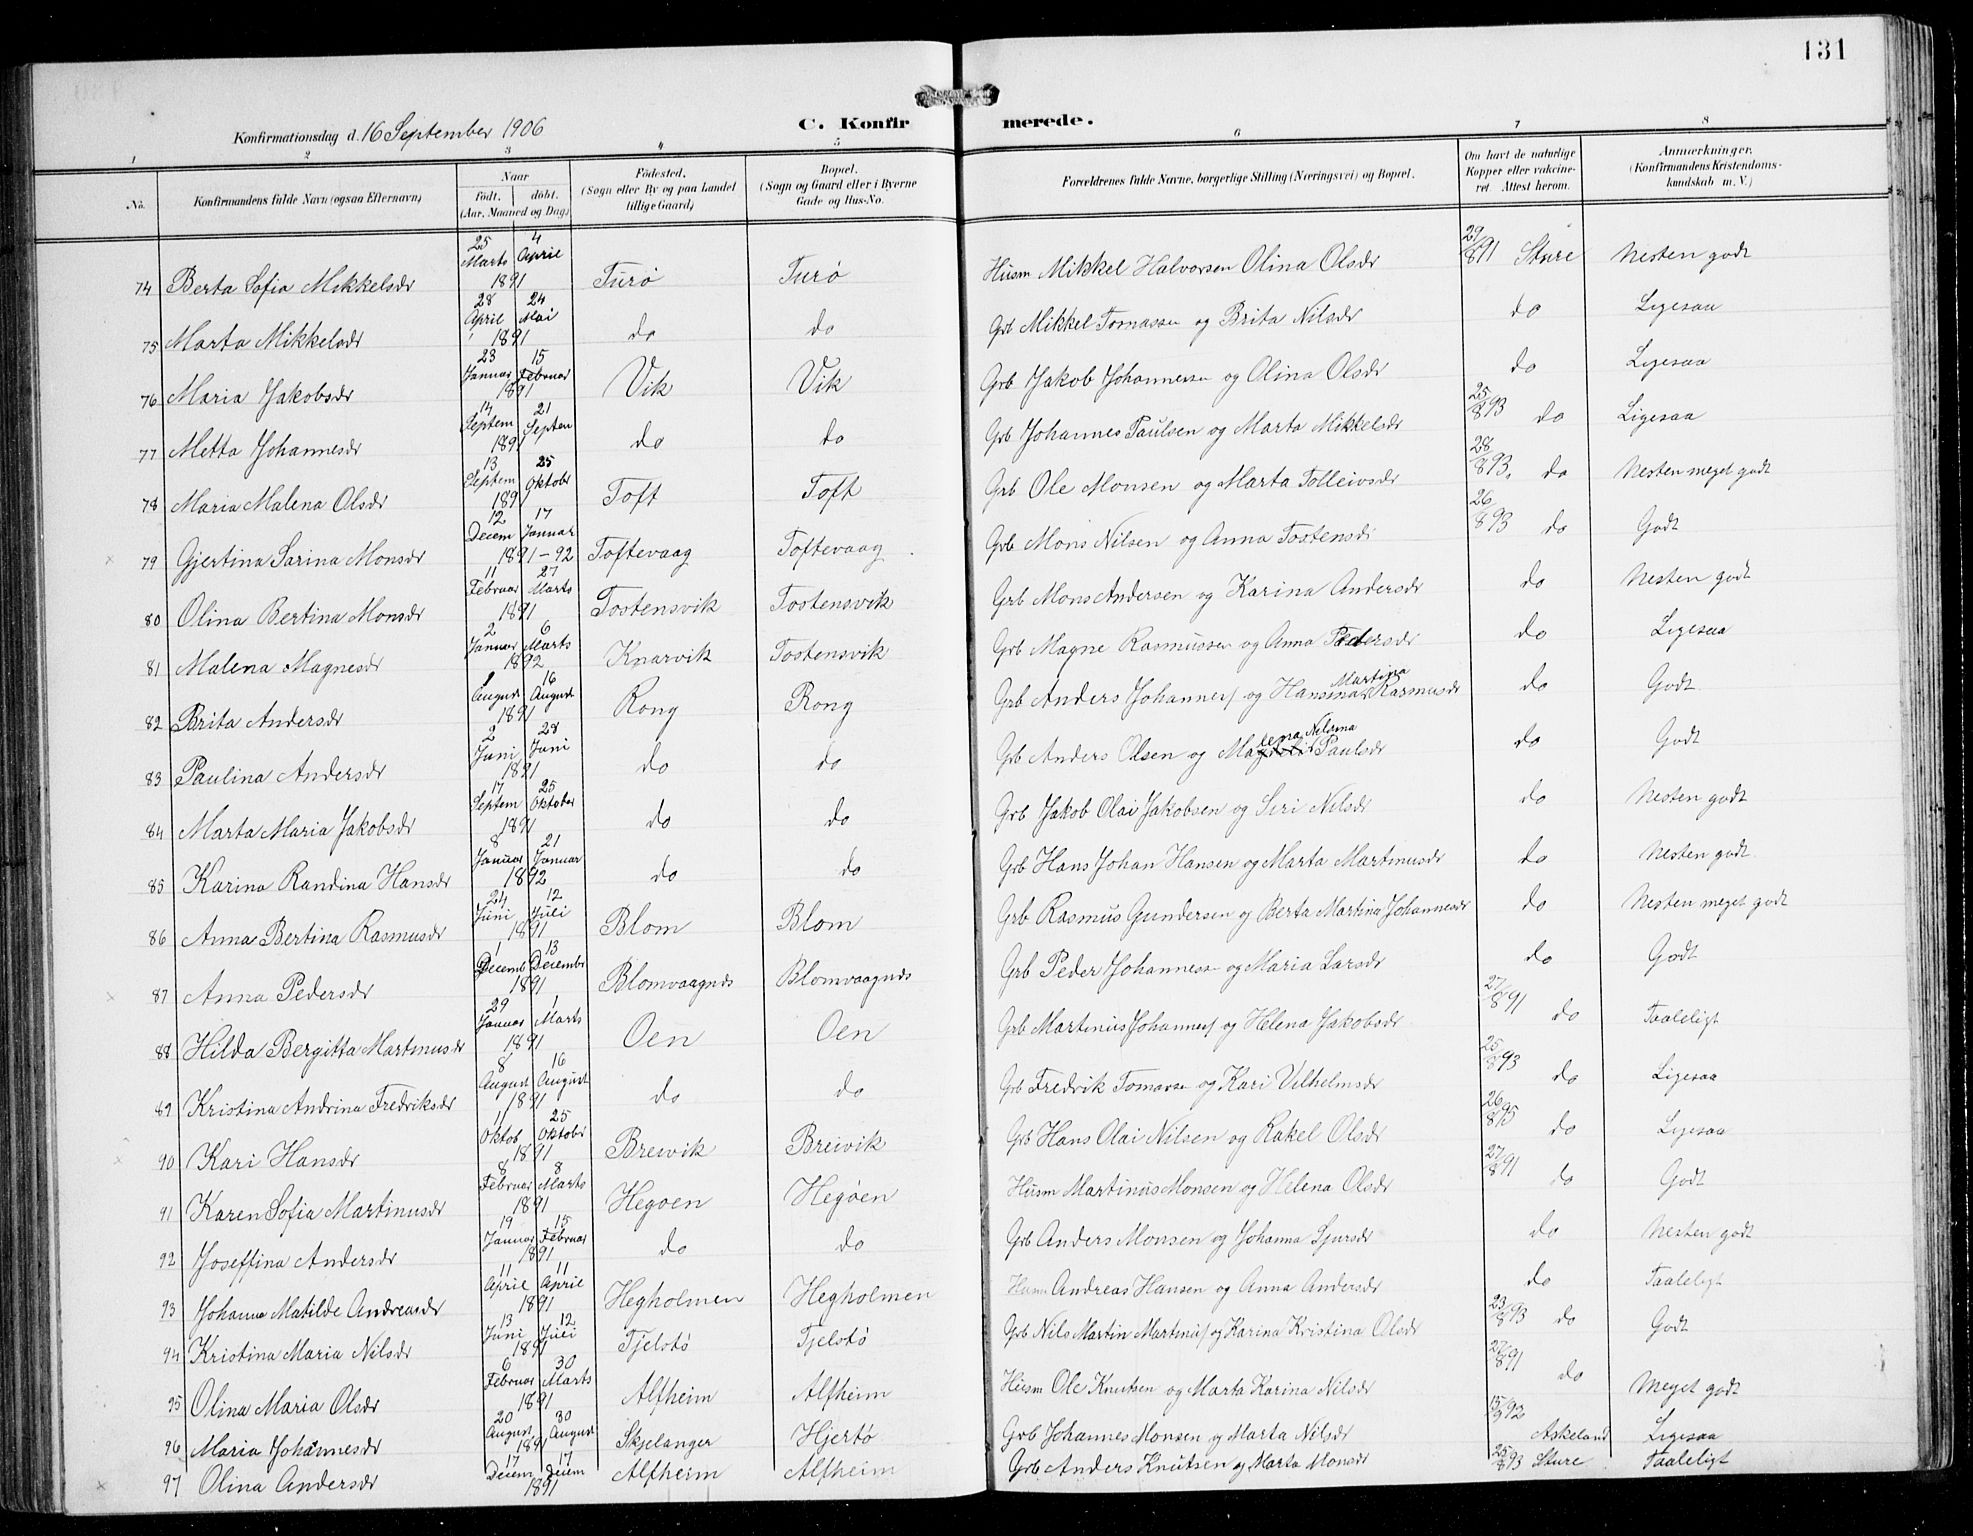 131
Konfirmationsdag d. 16 September 1906
C. Konfirmerede.
1 2 3 4 5 6 7 8
No. Konfirmandens fulde Navn (ogsaa Efternavn) Naar födt. döbt. (Aar, Maaned og Dag) Födested. (Sogn eller By og paa Landet tillige Gaard) Bopæl. (Sogn og Gaard eller i Byerne Gade og Hus-No. Forældrenes fulde Navne, borgerlige Stilling (Næringsvei) og Bopæl. Om havt de naturlige Kopper eller vakcineret. Attest herom. Anmærkninger. (Konfirmandens Kristendomskundskab m. V.)
74 Berta Sofia Mikkelsdr 25 Marts 4 April 1891 Turö Turö Husm Mikkel Halvorsen Olina Olsdr 29/8 91 Sture Nesten godt
75 Marta Mikkelsdr 28 April 24 Mai 1891 do do Grb Mikkel Tomassen og Brita Nilsdr do Ligesaa
76 Maria Jakobsdr 23 Januar 15 Februar 1891 Vik Vik Grb Jakob Johannessen og Olina Olsdr do Ligesaa
77 Metta Johannesdr 14 Septem 21 Septem 1891 do do Grb Johannes Paulsen og Marta Mikkelsdr 25/8 93 do Ligesaa
78 Maria Malena Olsdr 13 Septem 25 Oktobr 1891 Toft Toft Grb Ole Monsen og Marta Tolleivsdr 28/8 93. do Nesten meget godt
79 Gjertina Sarina Monsdr 12 Decem 17 Januar 1891-92 Toftevaag Toftevaag Grb Mons Nilsen og Anna Tostensd: 26/8 93 do Godt
80 Olina Bertina Monsdr 11 Februar 27 Marts 1891 Tostensvik Tostensvik Grb Mons Andersen og Karina Andersdr do Nesten godt
81 Malena Magnesdr 2 Januar 6 Marts 1892 Knarvik Tostensvik Grb Magne Rasmussen og Anna Pedersdr do Ligesaa
82 Brita Andersdr August 16 August 1891 Rong Rong Grb Anders Johannes/ og Hansina Martina Rasmusdr do Godt
83 Paulina Andersdr 2 Juni 28 Juni 1891 do do Grb Anders Olsen og Mag lena Nilsina Paulsdr do Godt
84 Marta Maria Jakobsdr 17 Septem 25 Oktober 1891 do do Grb Jakob Olai Jakobsen og Siri Nilsdr do Nesten godt
85 Karina Randina Hansdr 8 Januar 21 Januar 1892 do do Grb Hans Johan Hansen og Marta Martinusdr do Nesten godt
86 Anna Bertina Rasmusdr 24 Juni 12 Juli 1891 Blom Blom Grb Rasmus Gundersen og Berta Martina Johannesdr do Nesten meget godt
87 Anna Pedersdr 1 Decemb 13 Decembr 1891 Blomvaagnds Blomvaagnds Grb Peder Johannessen og Maria Larsdr do Godt
88 Hilda Bergitta Martinusdr 29 Januar 1 Marts 1891 Oen Oen Grb Martinus Johannes/ og Helena Jakobsdr 27/8 91 do Taaleligt
89 Kristina Andrina Fredriksdr 8 August 16 August 1891 do do Grb Fredrik Tomassen og Kari Vilhelmsdr 25/8 93 do Ligesaa
90 Kari Hansdr 1 Oktob 25 Oktober 1891 Breivik Breivik Grb Hans Olai Nilsen og Rakel Olsdr 26/8 95 do Ligesaa
91 Karen Sofia Martinusdr 8 Februar 8 Marts 1891 Hegoen Hegöen Husm Martinus Monsen og Helena Olsdr 27/8 91 do Godt
92 Joseffina Andersdr 19 Januar 15 Februar 1891 do do Grb Anders Monsen og Johanna Sjursdr do Nesten godt
93 Johanna Matilde Andreasdr 11 April 11 April 1891 Hegholmen Hegholmen Husm Andreas Hansen og Anna Andersdr do Taaleligt
94 Kristina Maria Nilsdr 13 Juni 12 Juli 1891 Tjelstö Tjelstö Grb Nils Martin Martinus/ og Karina Kristina Olsdr 23/8 93 do Godt
95 Olina Maria Olsdr 6 Februar 30 Marts 1891 Alfheim Alfheim Husm Ole Knutsen og Marta Karina Nilsdr 27/8 91 do Meget godt
96 Maria Johannesdr 20 August 30 August 1891 Skjelanger Hjertö Grb Johannes Monsen og Marta Nilsdr 15/9 92 Askeland Ligesaa
97 Olina Andersdr 17 Decem 17 Decem 1891 Alfheim Alfheim Grb Anders Knutsen og Marta Monsdr 25/8 93 Sture Taaleligt